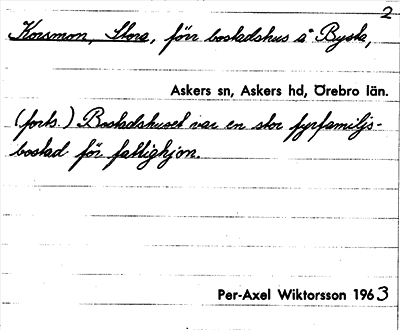 2
Korsmon, Stora, förr bostadshus å Bysta,
Askers sn, Askers hd, Örebro län.
(forts.) Bostadshuset var en stor fyrfamiljs-
bostad för fattighjon.
Per-Axel Wiktorsson 1963